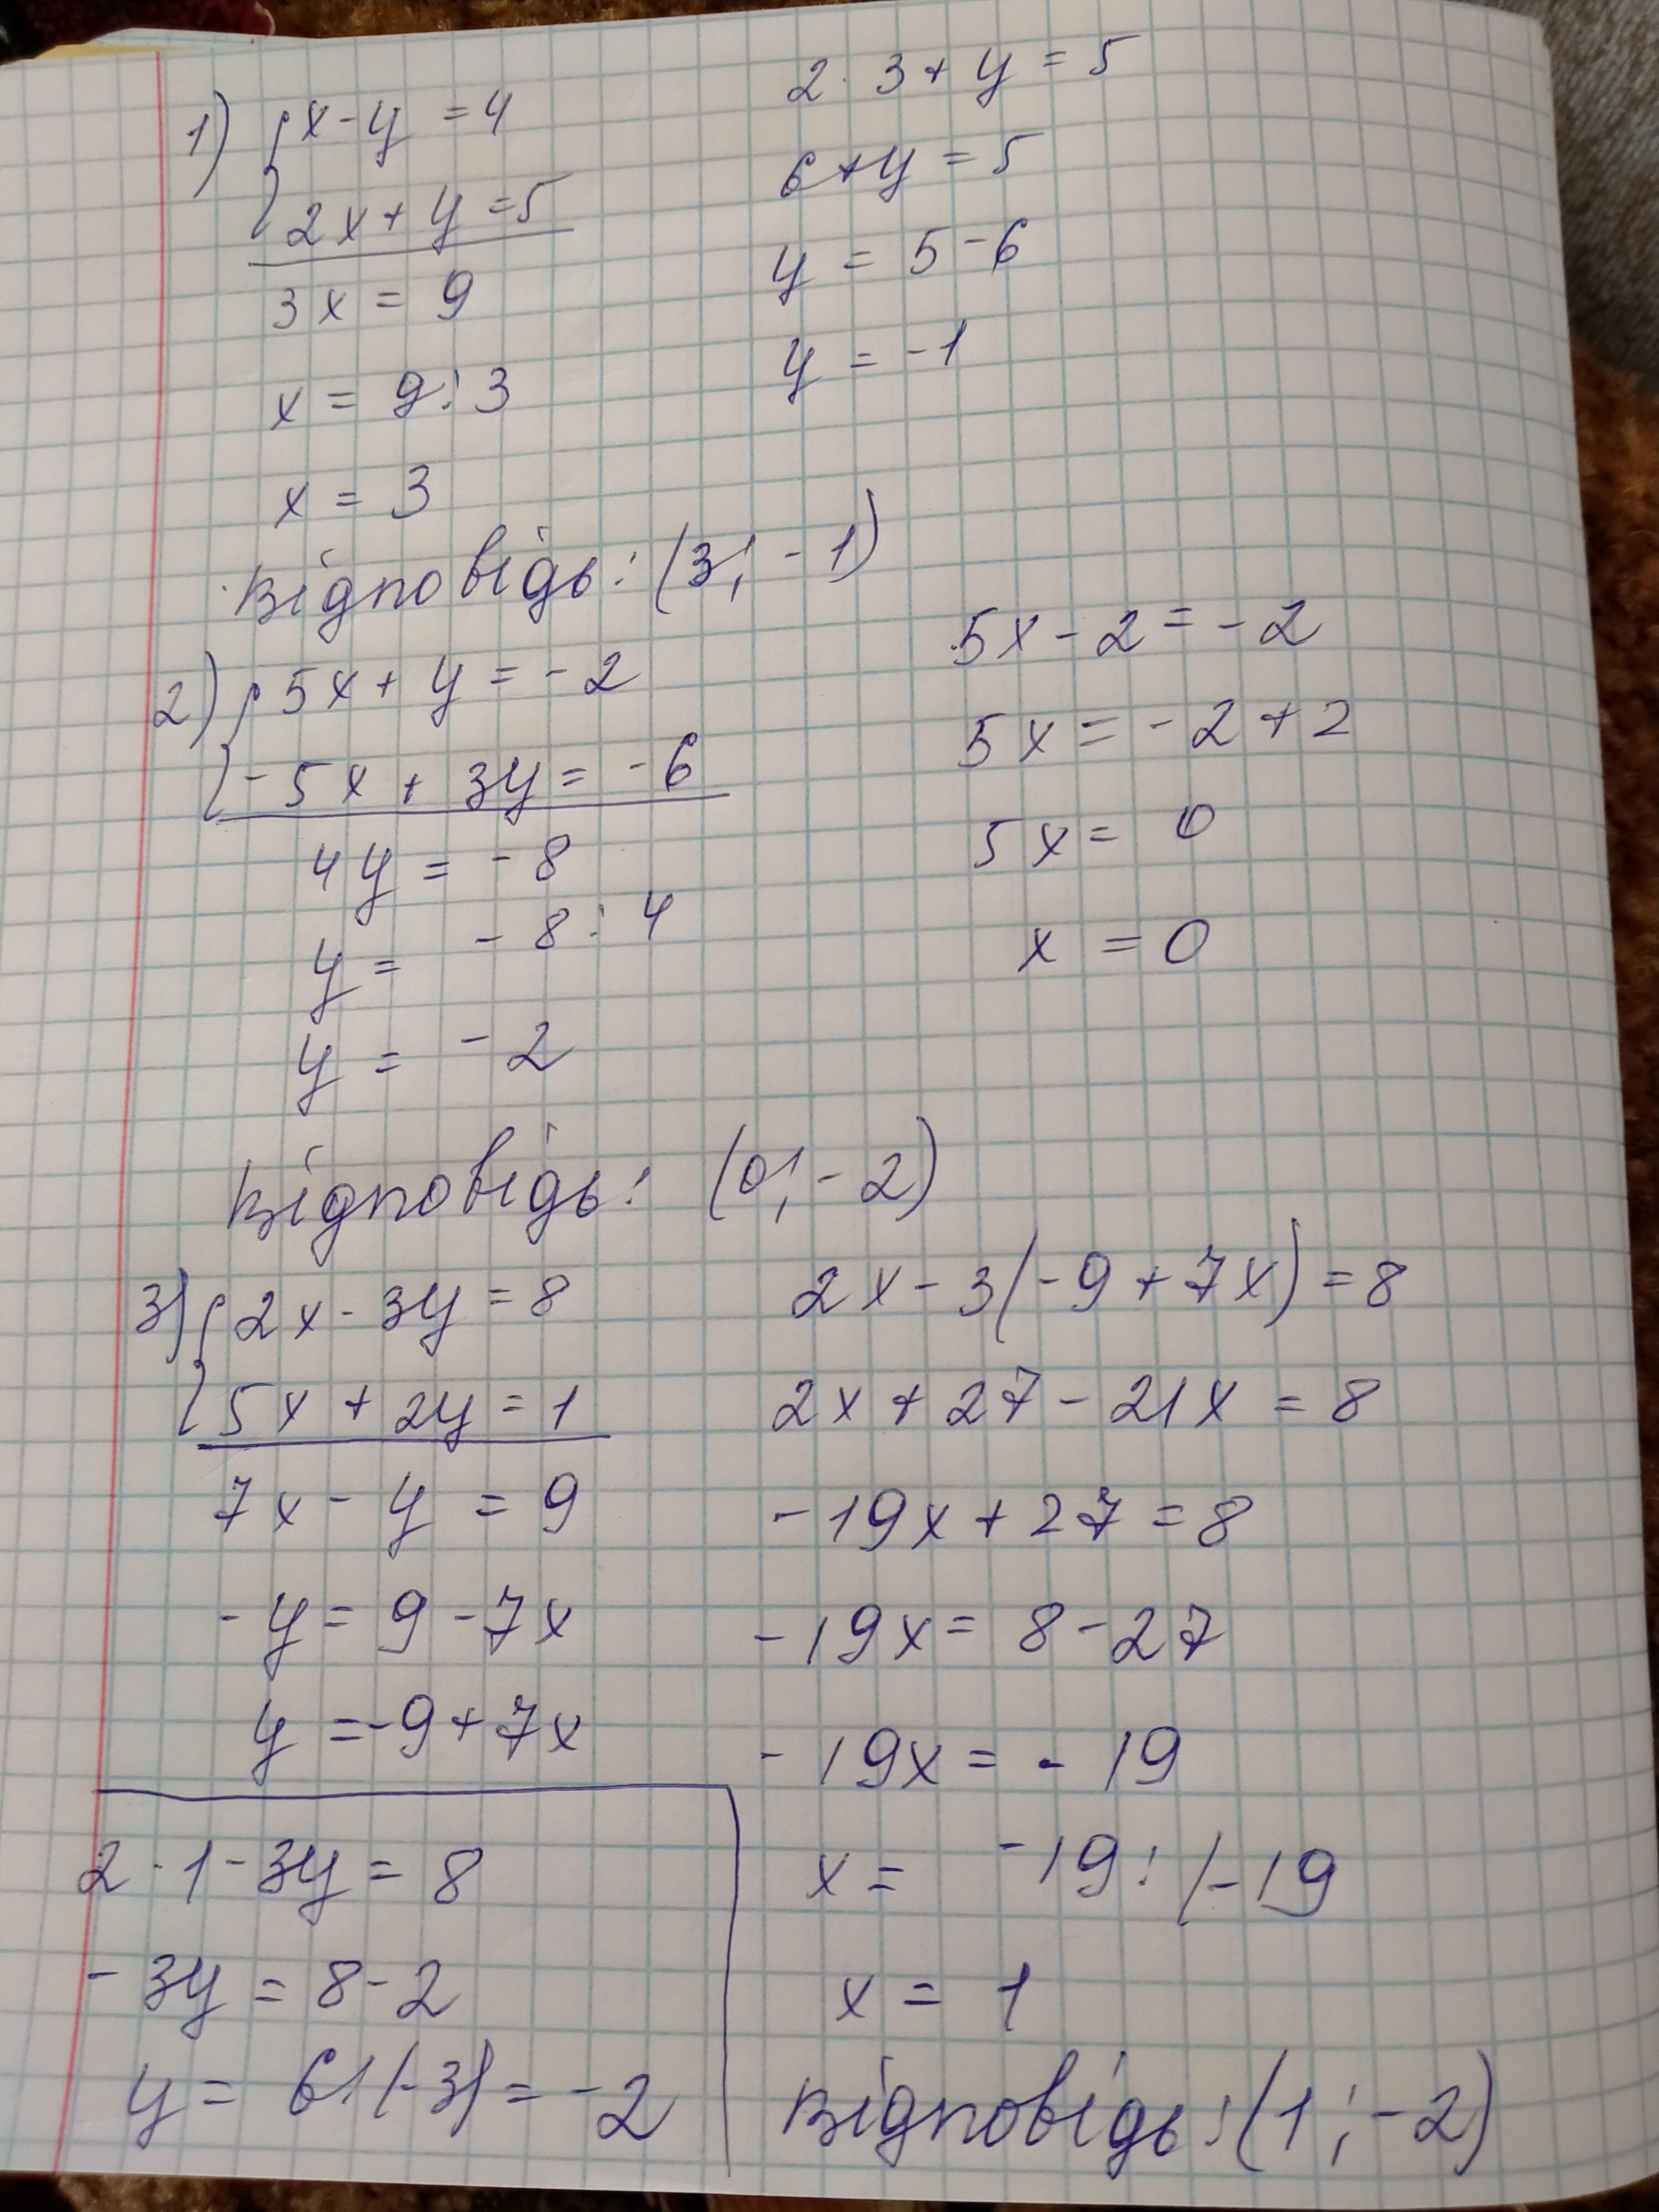 1) { x - y = 4
2x + y = 5
3x = 9
x = 9 : 3
x = 3
2 · 3 + y = 5
6 + y = 5
y = 5 - 6
y = -1
Відповідь: (3; -1)
2) { 5x + y = -2
-5x + 3y = -6
4y = -8
y = -8 : 4
y = -2
5x - 2 = -2
5x = -2 + 2
5x = 0
x = 0
Відповідь: (0; -2)
3) { 2x - 3y = 8
5x + 2y = 1
7x - y = 9
-y = 9 - 7x
y = -9 + 7x
2x - 3(-9 + 7x) = 8
2x + 27 - 21x = 8
-19x + 27 = 8
-19x = 8 - 27
-19x = -19
x = -19 : (-19
x = 1
2 · 1 - 3y = 8
-3y = 8 - 2
y = 6 : (-3) = -2
Відповідь: (1; -2)